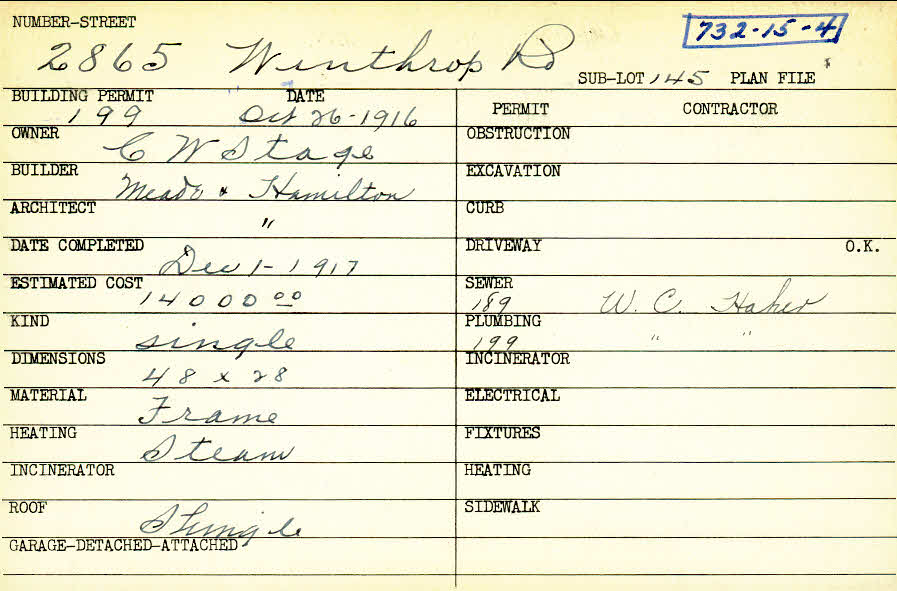 NUMBER-STREET
732-15-4
2865 Winthrop Rd
SUB-LOT 145 PLAN FILE
BUILDING PERMIT DATE
199 Oct 26-1916
PERMIT CONTRACTOR
OWNER C W Stage
OBSTRUCTION
BUILDER Meade & Hamilton
EXCAVATION
ARCHITECT "
CURB
DATE COMPLETED Dec 1-1917
DRIVEWAY O.K.
ESTIMATED COST 14000 00
SEWER 189 W. C.
KIND single
PLUMBING 199 " "
DIMENSIONS 48 x 28
INCINERATOR
MATERIAL Frame
ELECTRICAL
HEATING Steam
FIXTURES
INCINERATOR
HEATING
ROOF Shingle
SIDEWALK
GARAGE-DETACHED-ATTACHED